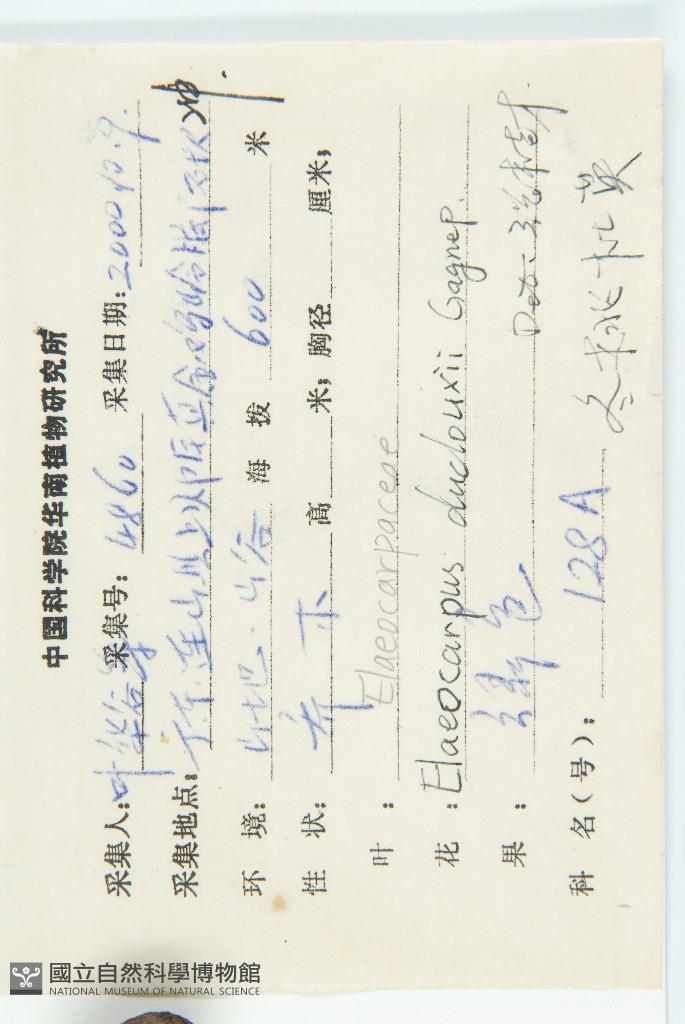 中国科学院华南植物研究所
采集人:叶华谷等 采集号:4860 采集日期:2000.10.9.
采集地点:广东.连山县上 冲.
环 境:山地.山谷 海 拨 600 米
性 状:乔木 高 米;胸径 厘米;
叶:
Elaeocarpaceae
花:Elaeocarpus duclouxii Gagnep.
果:绿色
Det.:
科 名(号):128A
國立自然科學博物館
NATIONAL MUSEUM OF NATURAL SCIENCE